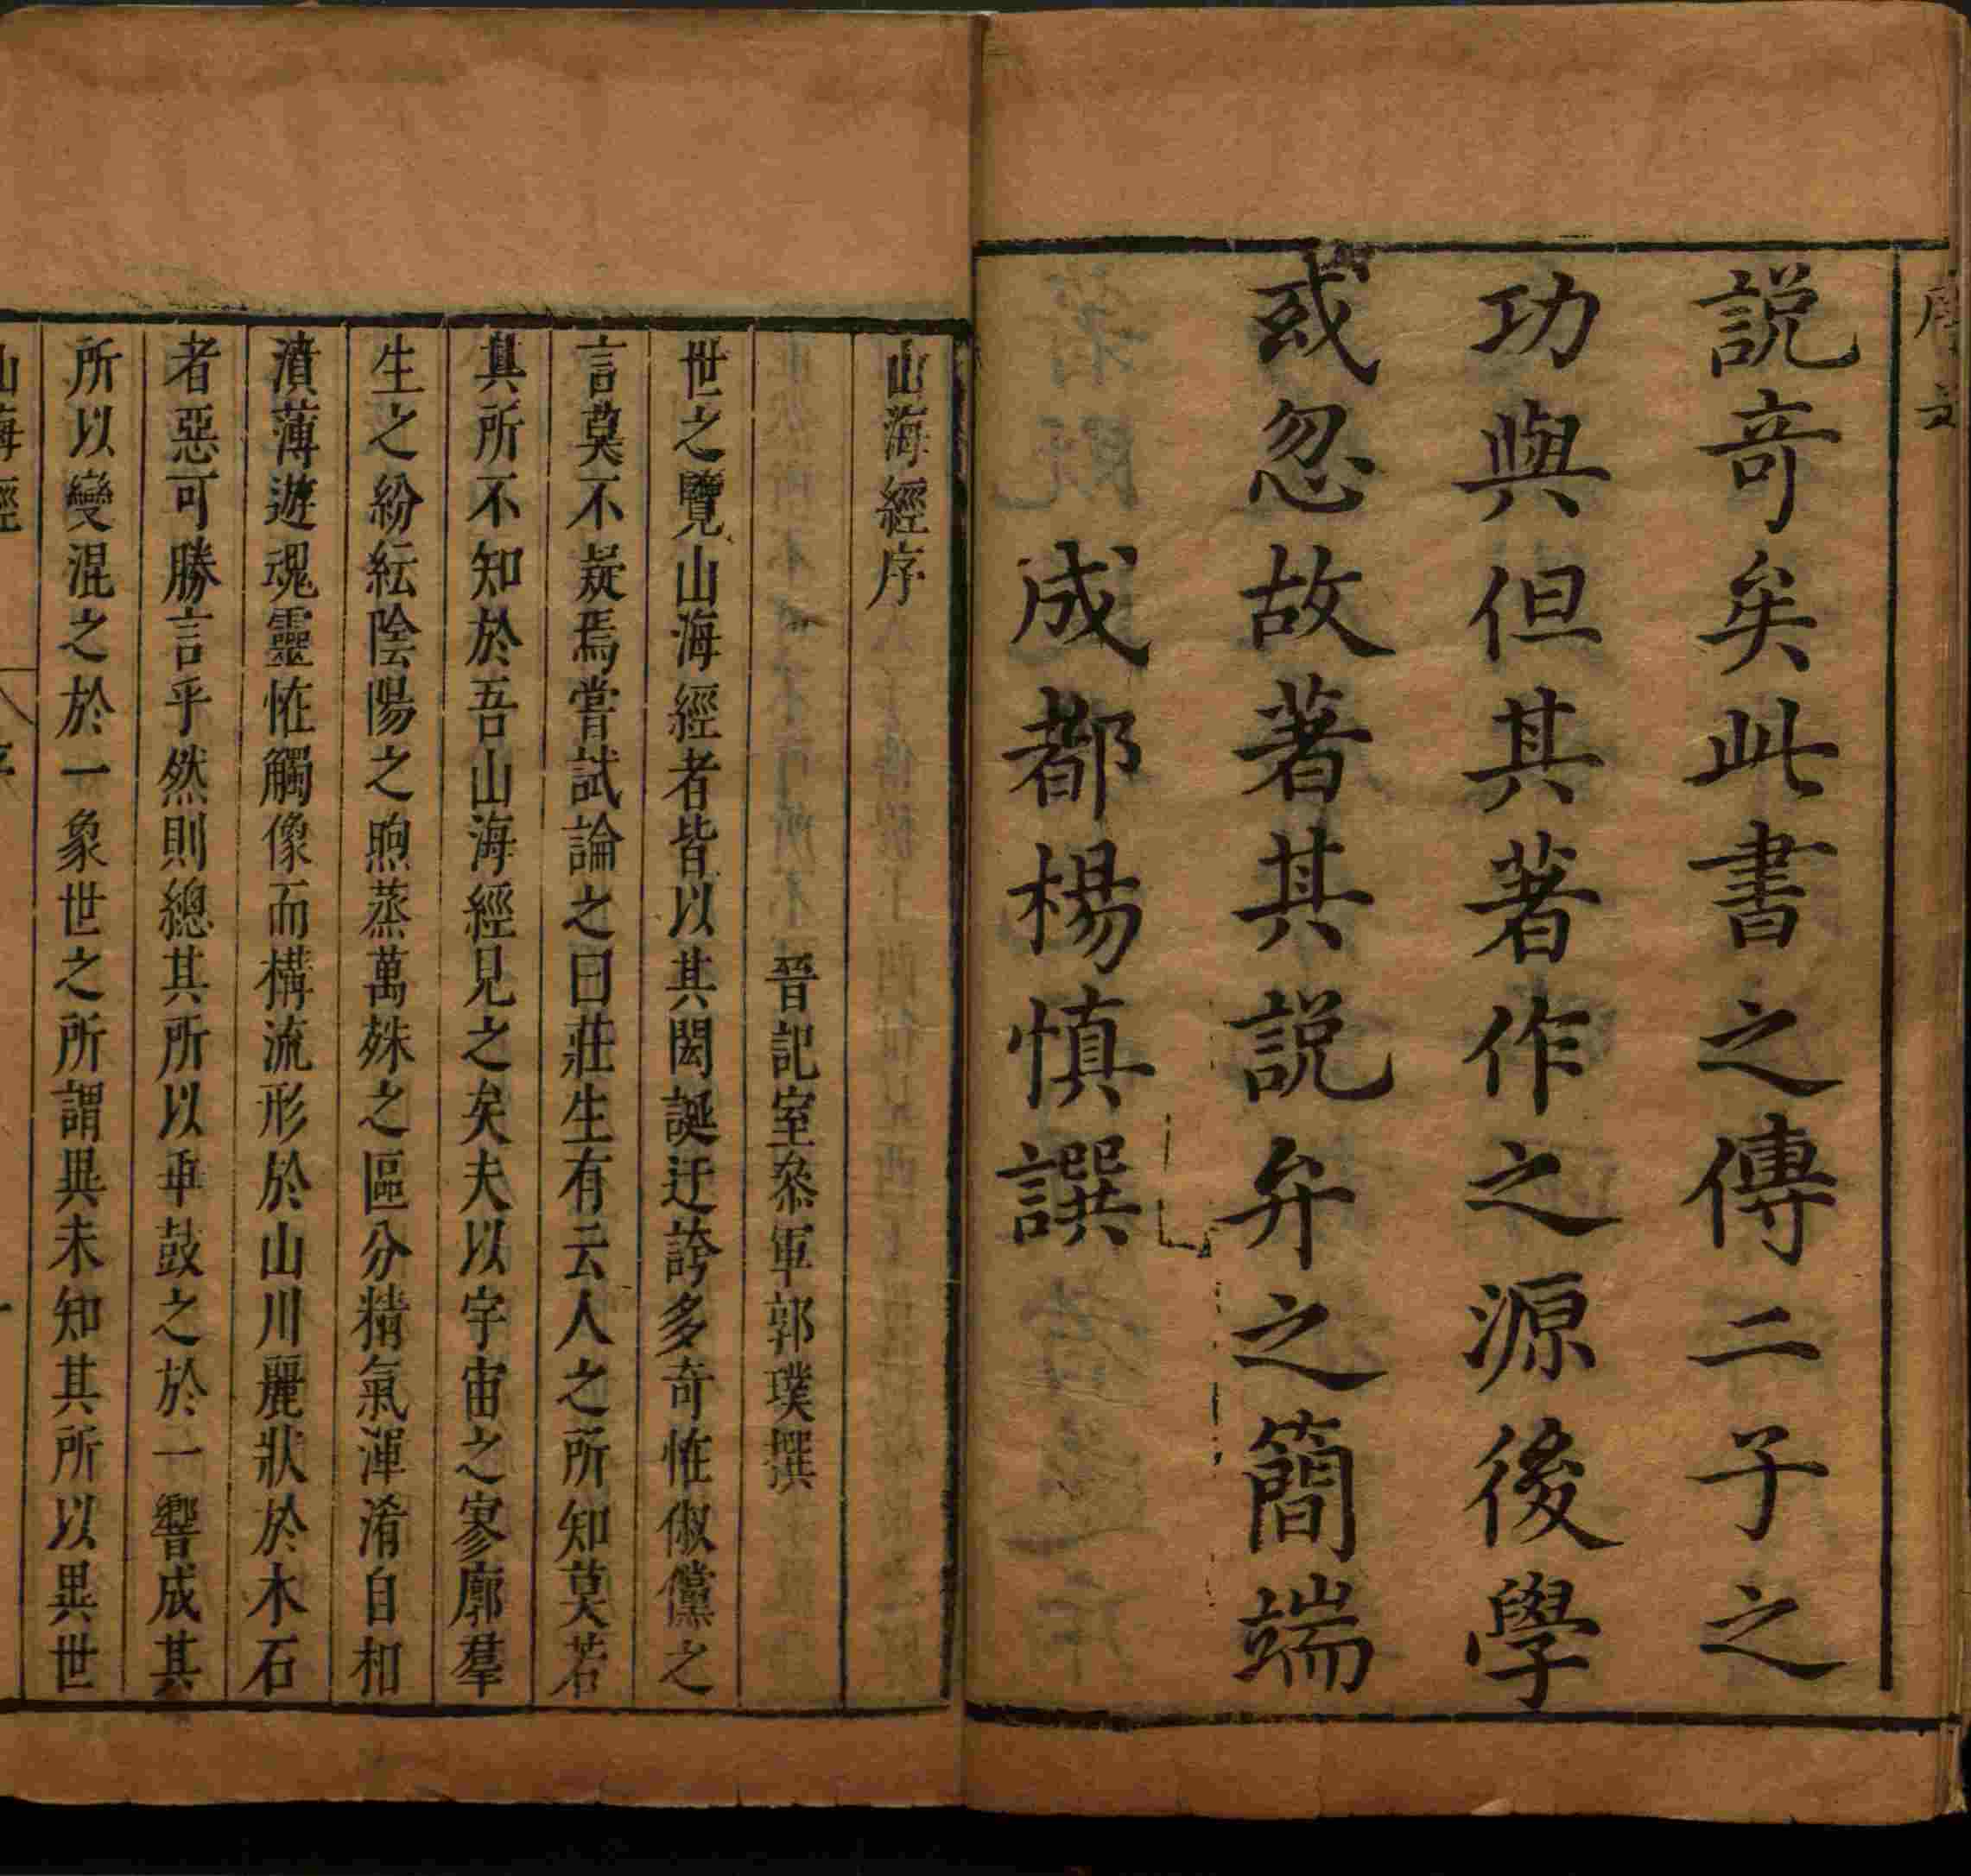 說奇矣此書之傳二子之
功與但其著作之源後學
或忽故著其說弁之簡端
成都楊慎譔
山海經序
晉記室叅軍郭璞撰
世之覽山海經者皆以其閎誕迂誇多奇恠俶儻之
言莫不疑焉嘗試論之曰莊生有云人之所知莫若
其所不知於吾山海經見之矣夫以宇宙之寥廓羣
生之紛紜陰陽之煦蒸萬殊之區分精氣渾淆自相
濆薄遊魂靈恠觸像而構流形於山川麗狀於木石
者惡可勝言乎然則總其所以乖鼓之於一響成其
所以變混之於一象世之所謂異未知其所以異世
山海經